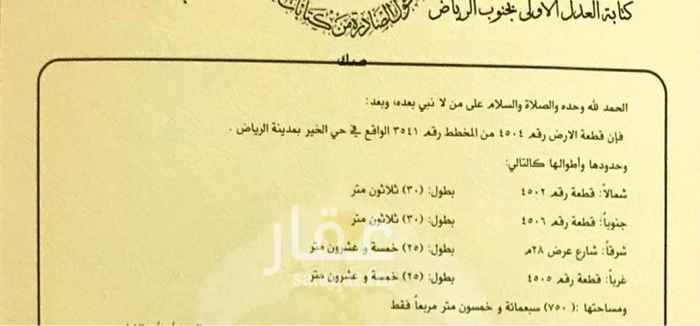 كتابة العدل الاولى بجنوب الرياض
صك
الحمد لله وحده والصلاة والسلام على من لا نبي بعده، وبعد:
فإن قطعة الارض رقم ٤٥٠٤ من المخطط رقم ٣٥٤١ الواقع في حي الخير بمدينة الرياض .
وحدودها وأطوالها كالتالي:
شمالاً: قطعة رقم ٤٥٠٢ بطول: (٣٠) ثلاثون متر
جنوباً: قطعة رقم ٤٥٠٦ بطول: (٣٠) ثلاثون متر
شرقاً: شارع عرض ٢٨م بطول: (٢٥) خمسة و عشرون متر
غرباً: قطعة رقم ٤٥٠٥ بطول: (٢٥) خمسة و عشرون متر
ومساحتها :(٧٥٠) سبعمائة و خمسون متر مربعاً فقط
عقار